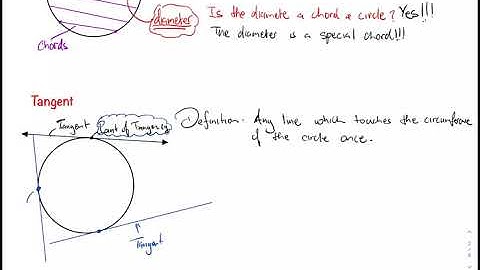 diameter
Is the diamete a chord a circle? Yes!!!
Chords
The diameter is a special chord!!!
Tangent
Tangent
Point of Tangency
Definition. Any line which touches the circumference
of the circle once.
Tangent